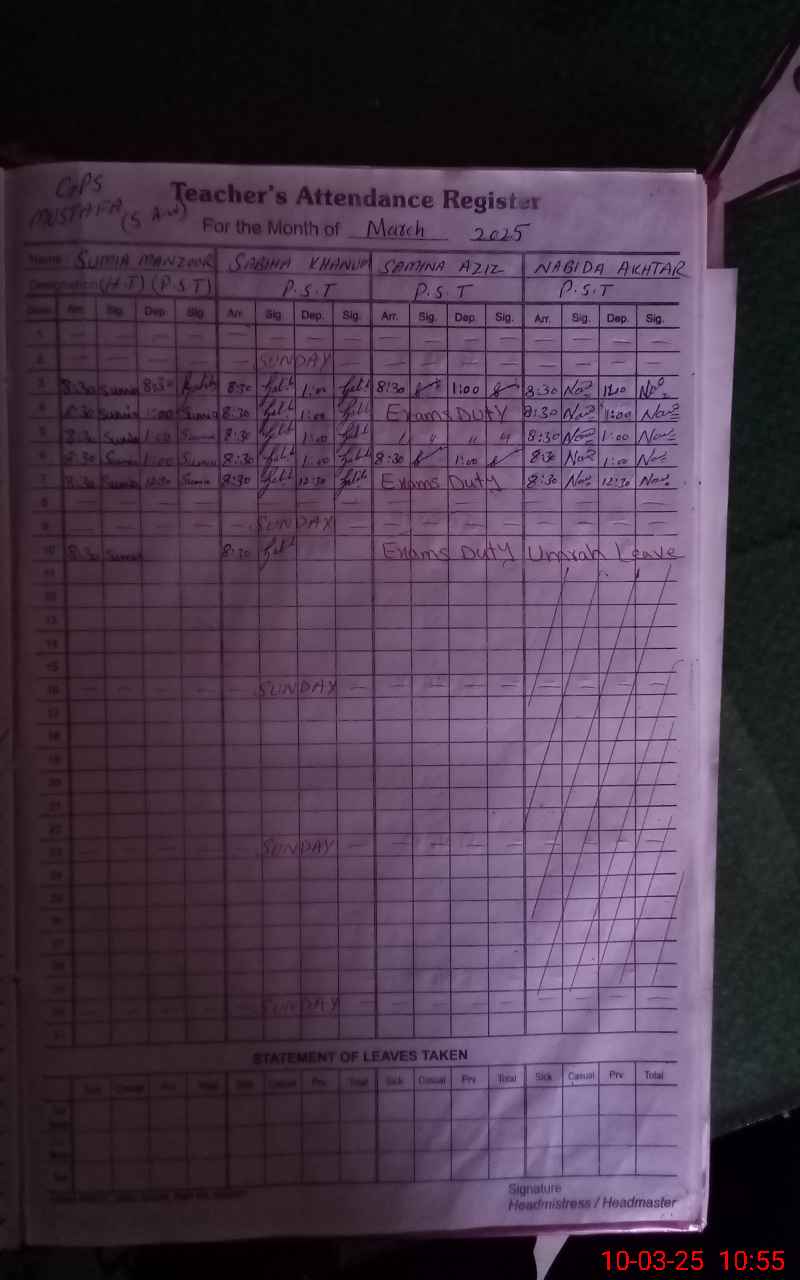 GGPS
MUSTAFA
Teacher's Attendance Register
For the Month of March 2025
Name SUMIA MANZOOR SABIHA KHANUM SAMINA AZIZ NABIDA AKHTAR
Designation (H.T) (P.S.T) P.S.T P.S.T P.S.T
Arr. Sig. Dep. Sig. Arr. Sig. Dep. Sig. Arr. Sig. Dep. Sig. Arr. Sig. Dep. Sig.
1
2 SUNDAY
3 8:30 Sumia 8:30 8:30 1:00 8:30 1:00 8:30
4 8:30 Sumia 1:00 Sumia 8:30 1:00 Exams Duty 8:30 1:00
5 8:30 Sumia 1:00 Sumia 8:30 1:00 " " " " 8:30 1:00
6 8:30 Sumia 1:00 Sumia 8:30 1:00 8:30 1:00 8:30 1:00
7 8:30 Sumia 12:30 Sumia 8:30 12:30 Exams Duty 8:30 12:30
8
9 SUNDAY
10 8:30 Sumia 8:30 Exams Duty Umrah Leave
11
12
13
14
15
16 SUNDAY
17
18
19
20
21
22
23 SUNDAY
24
25
26
27
28
29
30 SUNDAY
31
STATEMENT OF LEAVES TAKEN
Sick Casual Prv. Total Sick Casual Prv. Total Sick Casual Prv. Total Sick Casual Prv. Total
Signature
Headmistress / Headmaster
10-03-25 10:55